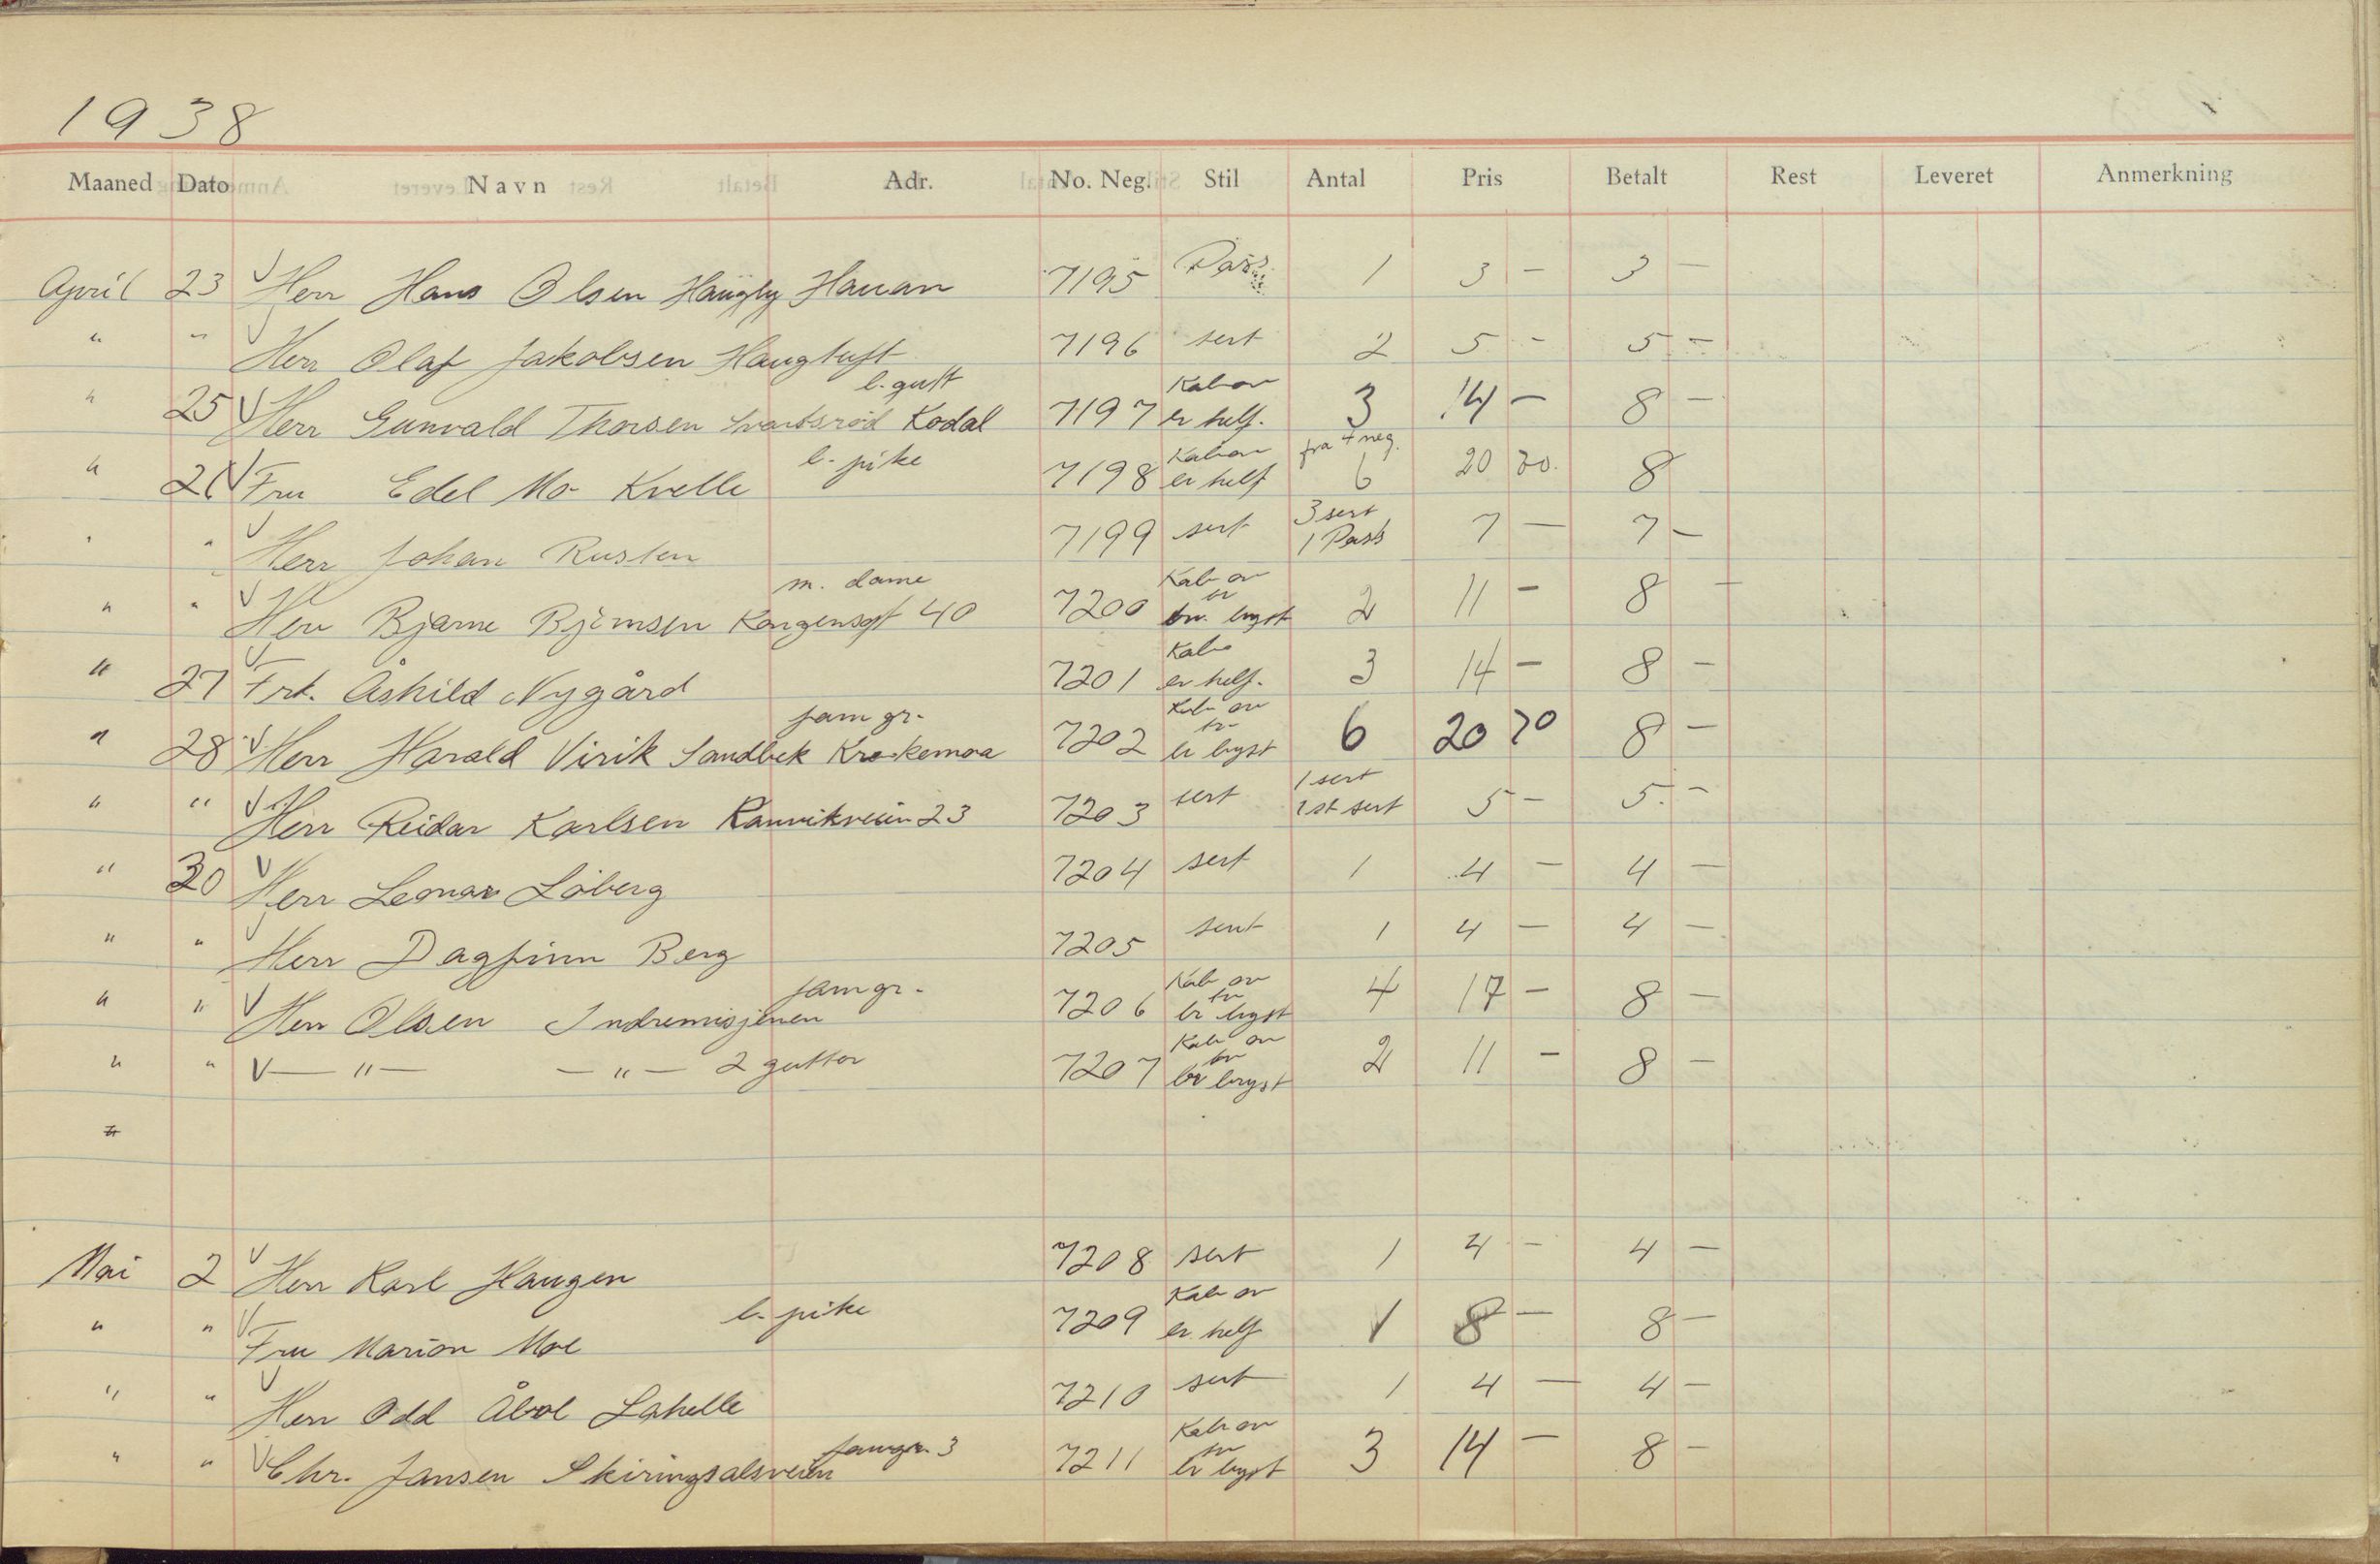 1938
Maaned Dato Navn Adr. No. Neg. Stil Antal Pris Betalt Rest Leveret Leveret Anmerkning
April 23 V Herr Hans Olsen Haugly Hauan 7195 Pass 1 3 — 3 —
" " V Herr Olaf Jakobsen Haugtuft 7196 sert 2 5 - 5 —
b. gutt Kab or
" 25 V Herr Gunvald Thorsen Svartsrød Kodal 7197 er helf. 3 14 — 8 —
b. pike Kab or fra 4 neg.
" V Fru Edel Mo Kvelle 7198 er helf 6 20 70. 8
3 sert
" " V Herr Johan Rusten 7199 sert 1 Pass 7 — 7 —
m. dame Kab or
" " V Herr Bjarne Bjørnsen Kongensgt 40 7200 br. bryst 2 11 — 8 —
Kab
" 27 V Frk. Åshild Nygård 7201 er helf. 3 14 — 8 —
fam gr. Kab or
" 28 V Herr Harald Virik Sandbek Krokemoa 7202 br bryst 6 20 70 8 —
1 sert
" " V Herr Reidar Karlsen Ranvikveien 23 7203 sert 1 st sert 5 — 5. —
" 30 V Herr Leonar Löberg 7204 sert 1 4 — 4 —
" " V Herr Dagfinn Berg 7205 sert 1 4 — 4 —
fam gr. Kab or
" " V Herr Olsen Indremisjonen 7206 br bryst 4 17 — 8 —
Kab or
" " V — " — — " — 2 gutter 7207 br bryst 2 11 — 8 —
"
Mai 2 V Herr Karl Haugen 7208 sert 1 4 — 4 —
b. pike Kab or
" " V Fru Marion Moe 7209 er helf 1 8 — 8 —
" " V Herr Odd Åbol Lahelle 7210 sert 1 4 — 4 —
famgr. 3 Kab or
" " V Chr. Jansen Skiringsalsveien 7211 br bryst 3 14 — 8 —